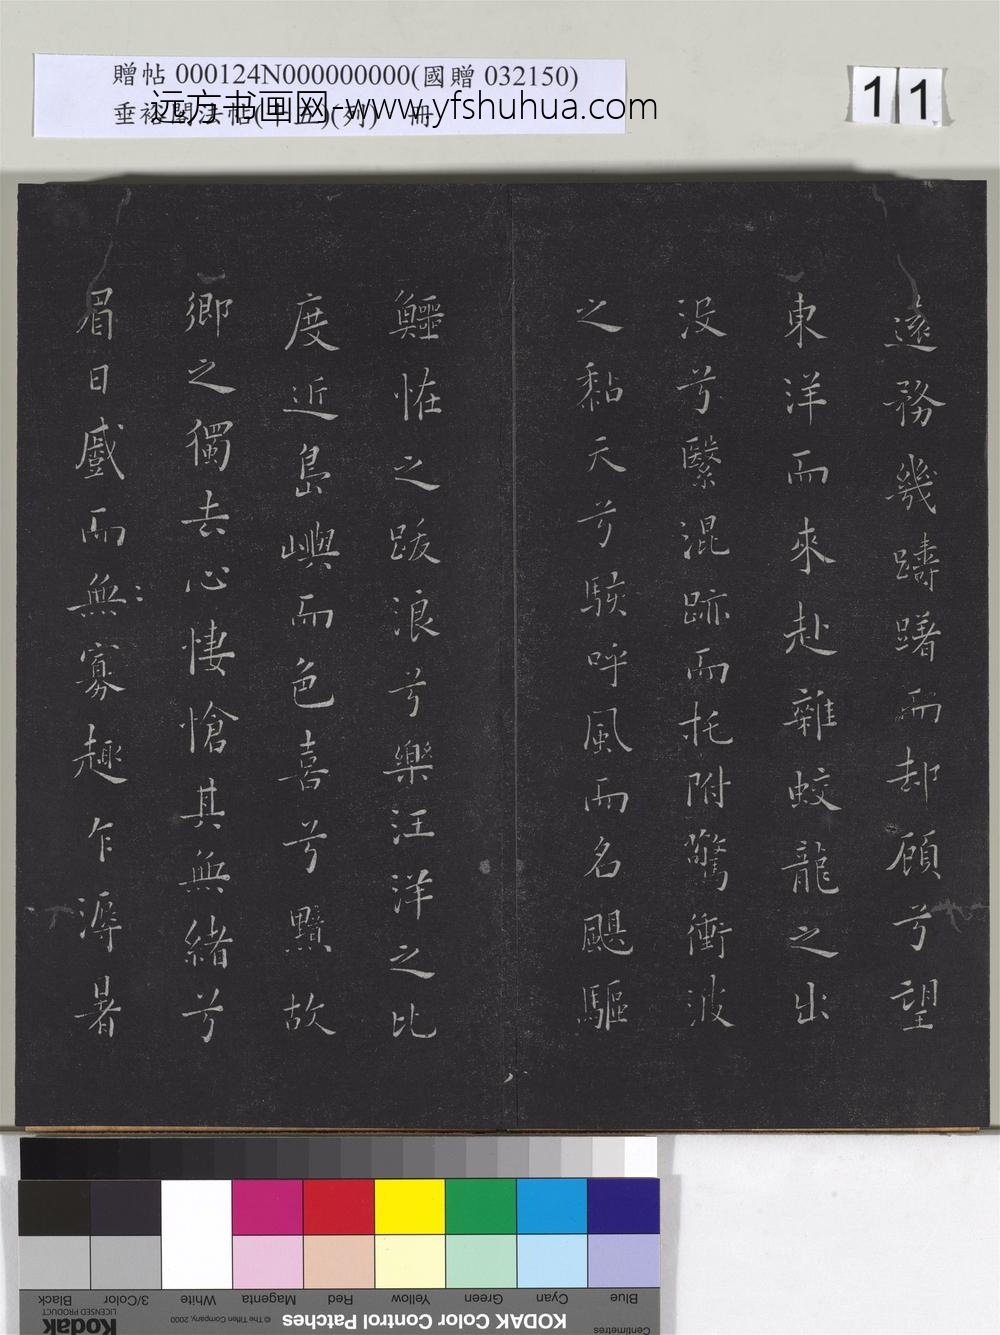 贈帖 000124N000000000(國贈 032150)
垂裕閣法帖(十五)(列) 冊
远方书画网-www.yfshuhua.com
11
遠務幾躊躇而却顧兮望
東洋而來赴雜蛟龍之出
没兮繄混跡而托附驚衝波
之黏天兮駭呼風而名颶驅
鱷恠之跋浪兮樂汪洋之比
度近島嶼而色喜兮黯故
鄉之獨去心悽愴其無緒兮
眉日蹙而無寡趣乍溽暑
Blue
Cyan
Green
Yellow
Red
Magenta
White
3/Color
Black
Centimetres
KODAK Color Control Patches
© The Tiffen Company, 2000
Kodak
LICENSED PRODUCT